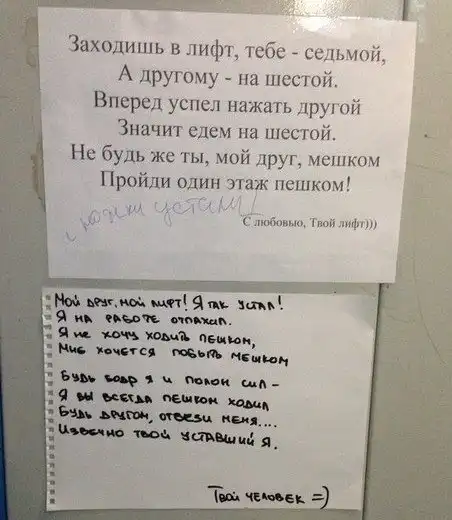 Заходишь в лифт, тебе - седьмой,
А другому - на шестой.
Вперед успел нажать другой
Значит едем на шестой.
Не будь же ты, мой друг, мешком
Пройди один этаж пешком!
устали!
С любовью, Твой лифт)))
Мой друг, мой лифт! Я так устал!
Я на работе отпахил.
Я не хочу ходить пешком,
Мне хочется побыть мешком
Будь бодр я и полон сил -
Я бы всегда пешком ходил
Будь другом, отвези меня....
Извечно твой уставший я.
Твой человек =)